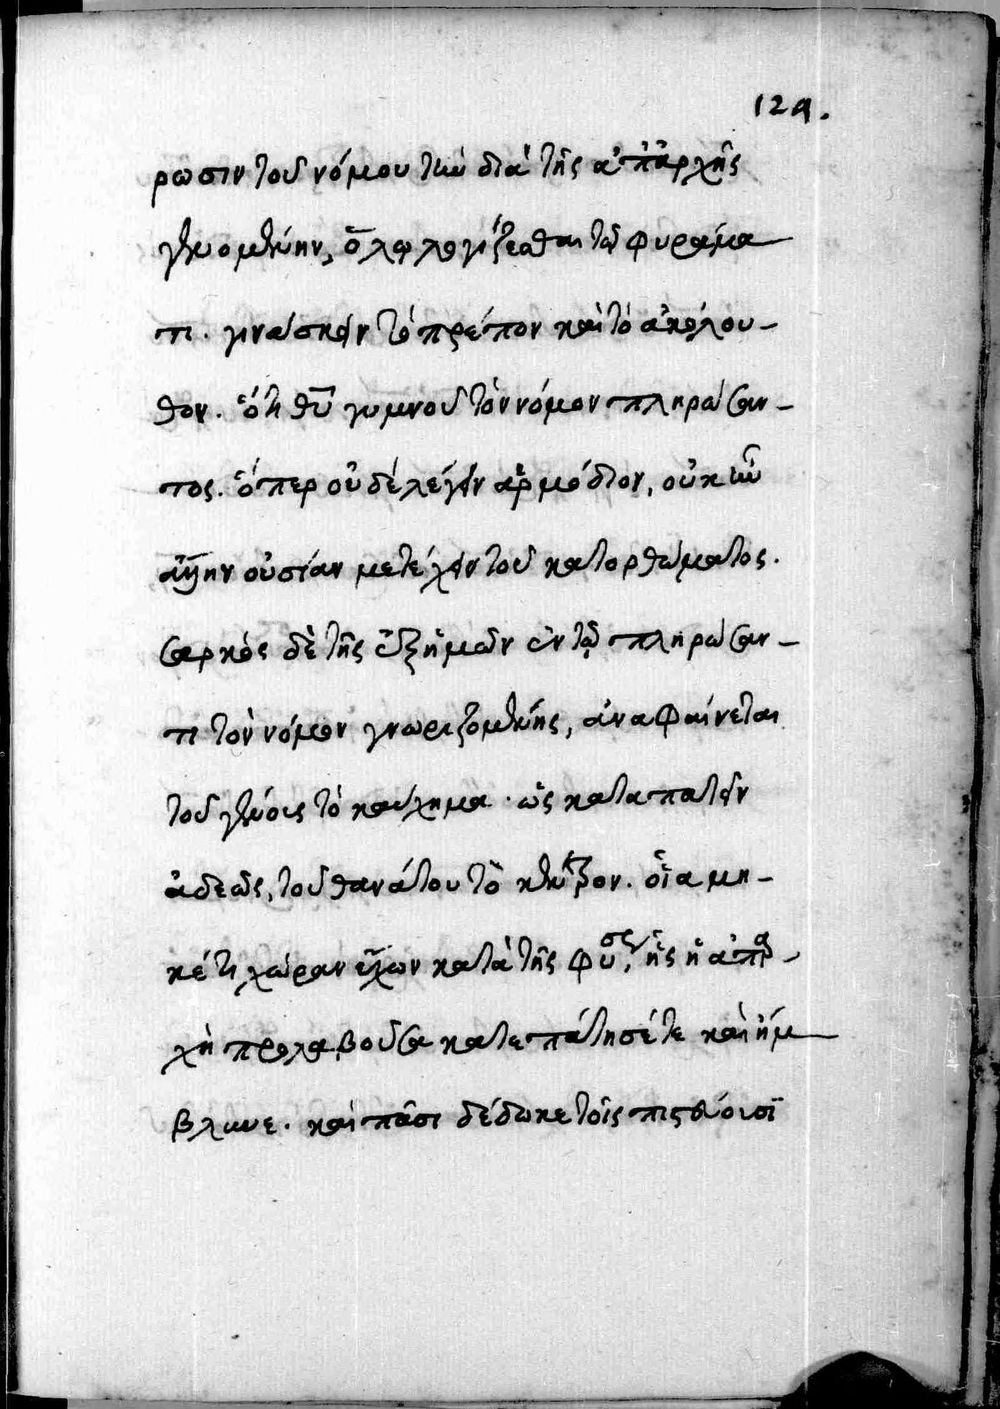 129.
ρωσιν τοῦ νόμου τὴν διὰ τῆς ἀπαρχῆς
γενομένην, ὅλῳ λογίζεσθαι τῷ φυράμα
τι. γινώσκειν τὸ πρέπον καὶ τὸ ἀκόλου-
θον. ὅτι θῦ γυμνοῦ τὸν νόμον πληρώσαν-
τος. ὅπερ οὐδὲ λέγειν ἁρμόδιον, οὐκ ἦν
οὐσίαν μετέχειν τοῦ κατορθώματος.
σαρκὸς δὲ τῆς ἐξ ἡμῶν ἐν τῷ πληρώσαν-
τι τὸν νόμον γνωριζομένης, ἀναφαίνεται
τοῦ γένους τὸ καύχημα. ὡς καταπατεῖν
ἀδεῶς, τοῦ θανάτου τὸ κέντρον. οἷα μη-
κέτι χώραν ἔχων κατὰ τῆς φύσεως, ἧς ἡ ἀπαρ-
χὴ προλαβοῦσα κατεπάτησέ τε καὶ ἤμ
βλυνε. καὶ πᾶσι δέδωκε τοῖς πιστεύουσϊ